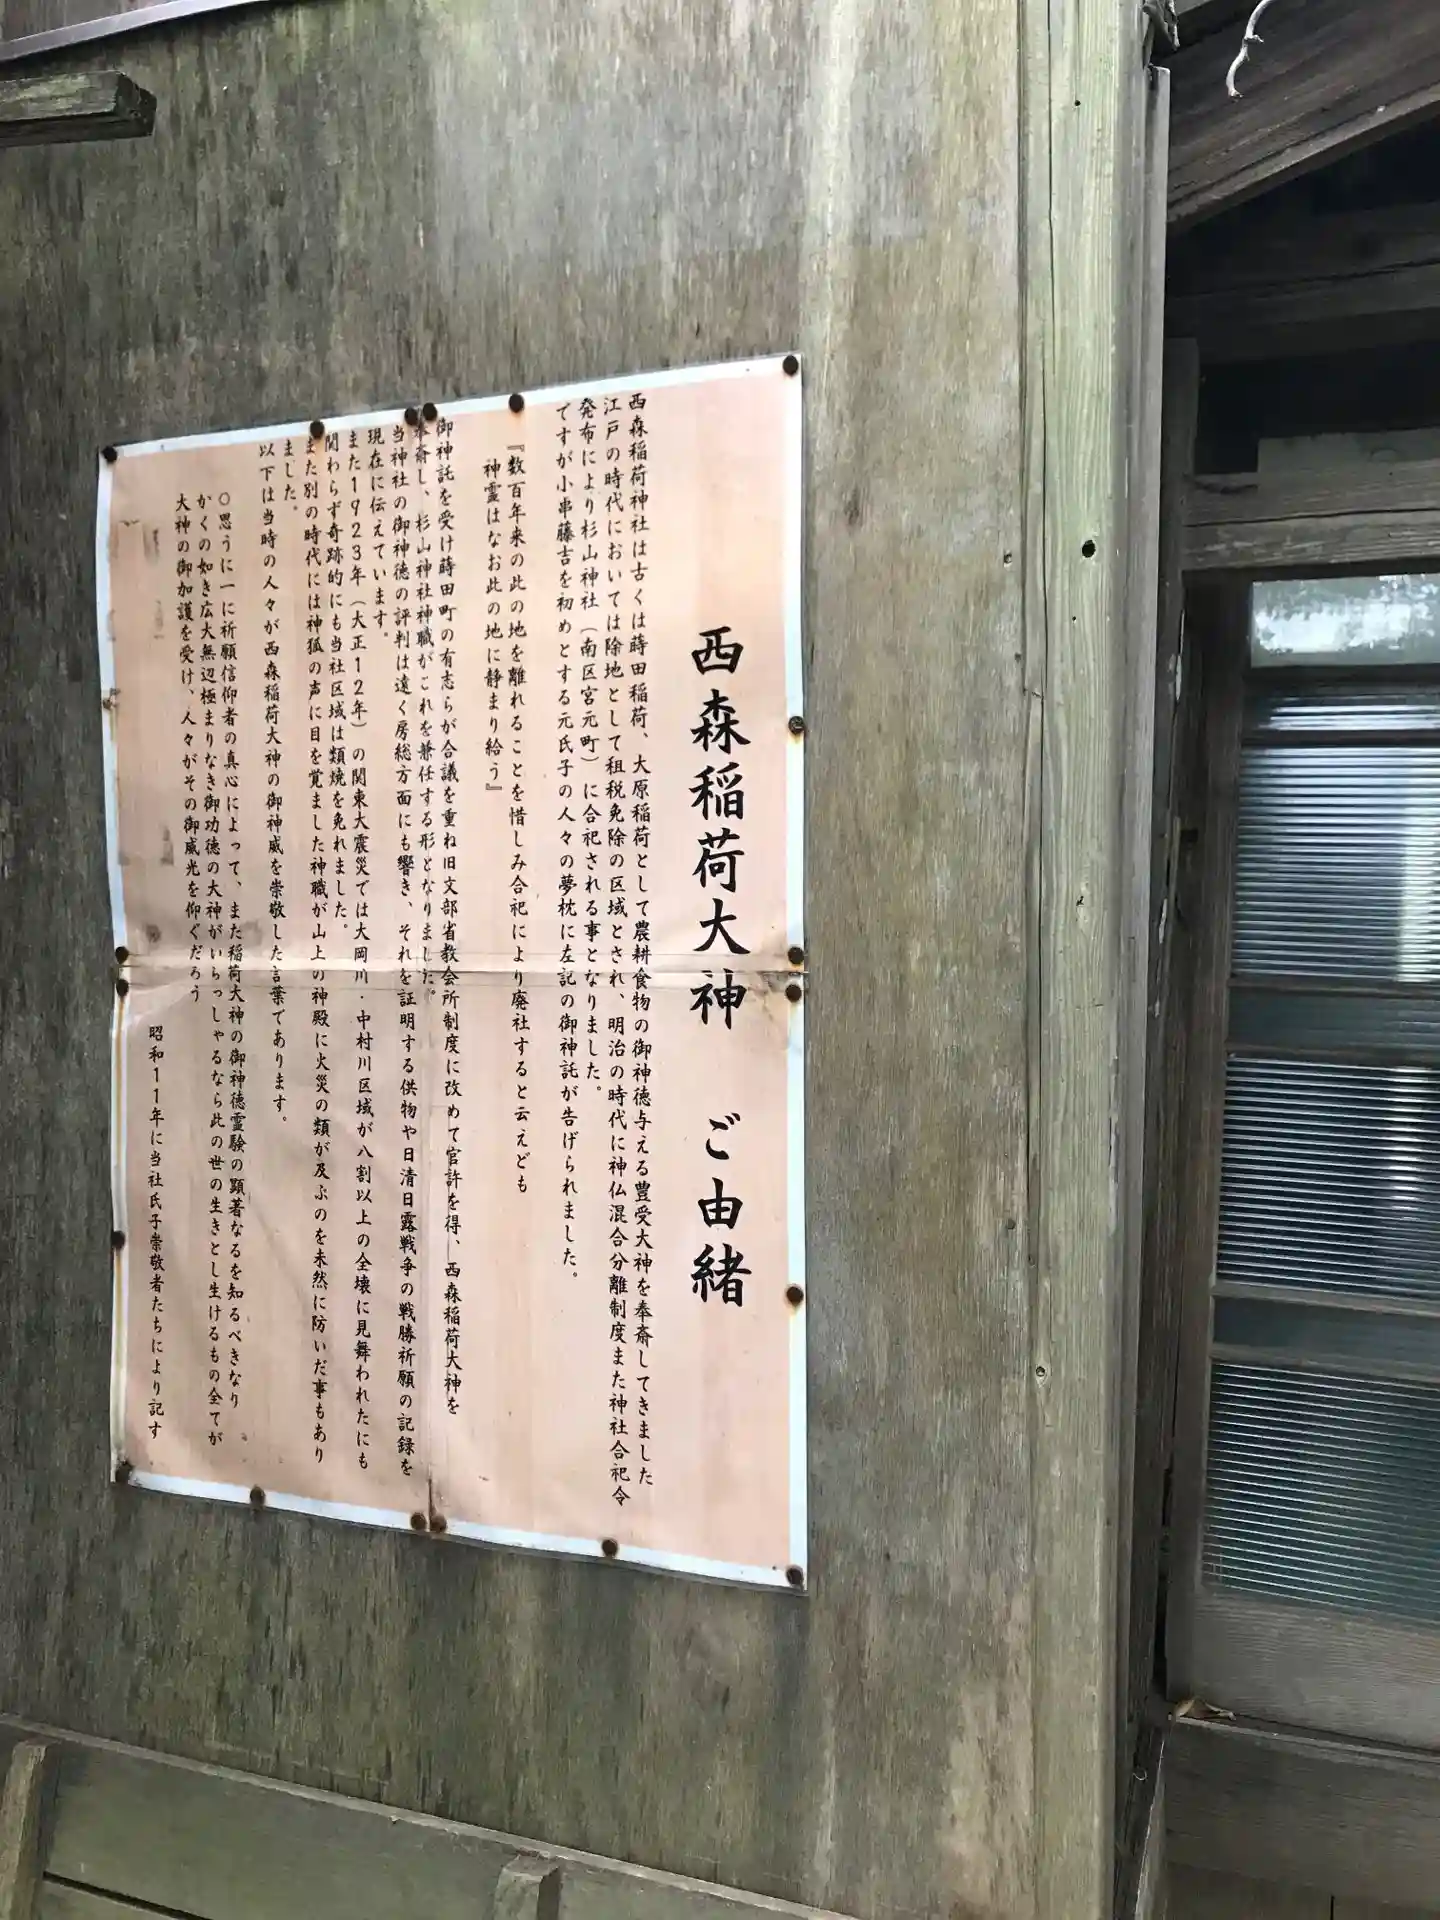 西森稲荷大神 ご由緒
西森稲荷神社は古くは蒔田稲荷、大原稲荷として農耕食物の御神徳与える豊受大神を奉斎してきました
江戸の時代においては除地として租税免除の区域とされ、明治の時代に神仏混合分離制度また神社合祀令
発布により杉山神社（南区宮元町）に合祀される事となりました。
ですが小串藤吉を初めとする元氏子の人々の夢枕に左記の御神託が告げられました。
『数百年来の此の地を離れることを惜しみ合祀により廃社すると云えども
神霊はなお此の地に静まり給う』
御神託を受け蒔田町の有志らが合議を重ね旧文部省教会所制度に改めて官許を得、西森稲荷大神を
奉斎し、杉山神社神職がこれを兼任する形となりました。
当神社の御神徳の評判は遠く房総方面にも響き、それを証明する供物や日清日露戦争の戦勝祈願の記録を
現在に伝えています。
また1923年（大正12年）の関東大震災では大岡川・中村川区域が八割以上の全壊に見舞われたにも
関わらず奇跡的にも当社区域は類焼を免れました。
また別の時代には神狐の声に目を覚ました神職が山上の神殿に火災の類が及ぶのを未然に防いだ事もあり
ました。
以下は当時の人々が西森稲荷大神の御神威を崇敬した言葉であります。
○思うに一に祈願信仰者の真心によって、また稲荷大神の御神徳霊験の顕著なるを知るべきなり
かくの如き広大無辺極まりなき御功徳の大神がいらっしゃるなら此の世の生きとし生けるもの全てが
大神の御加護を受け、人々がその御威光を仰ぐだろう
昭和11年に当社氏子崇敬者たちにより記す